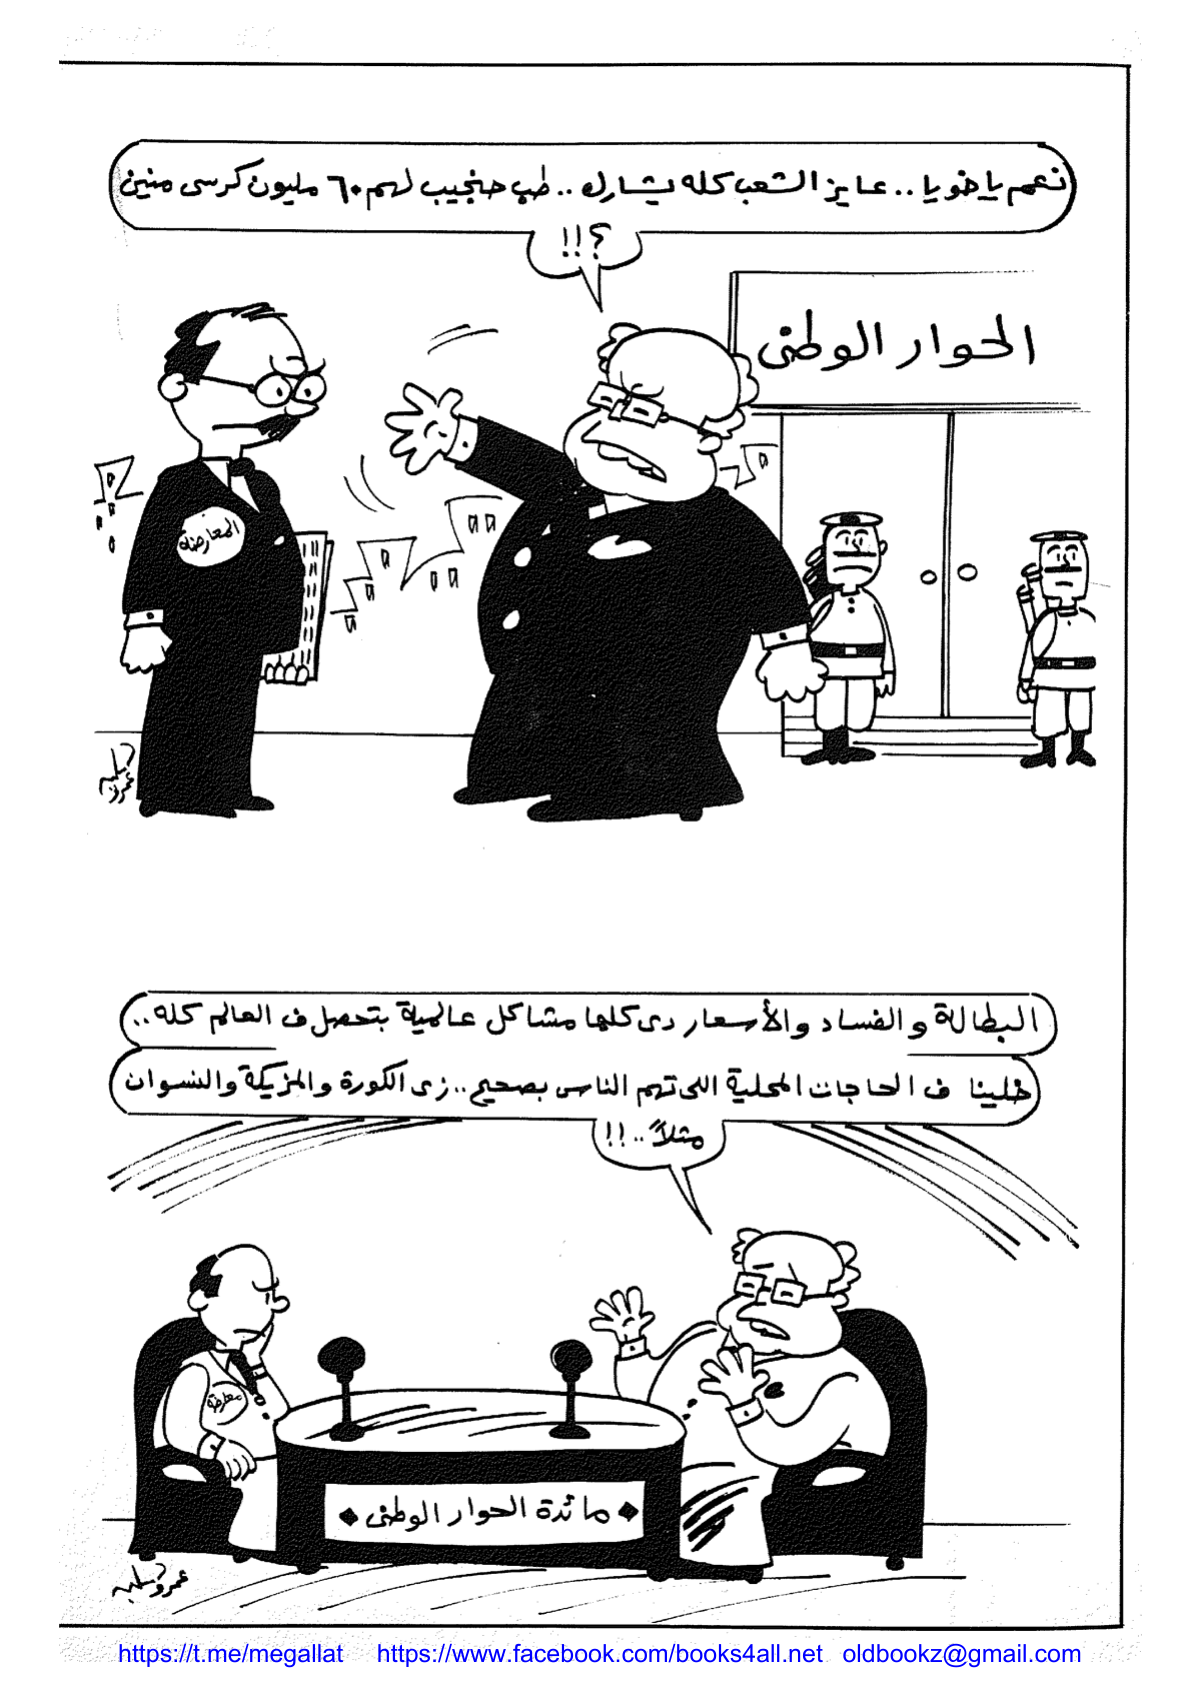 نعم ياخويا .. عايز الشعب كله يشارك .. طب حنجيب لهم ٦٠ مليون كرسى منين
؟!!
الحوار الوطنى
المعارضة
عمرو سليم
البطالة والفساد والأسعار دى كلها مشاكل عالمية بتحصل ف العالم كله..
خلينا ف الحاجات المحلية اللى تهم الناس بصحيح.. زى الكورة والمزيكة والنسوان
مثلاً..!!
معارضة
مائدة الحوار الوطنى
عمرو سليم
https://t.me/megallat https://www.facebook.com/books4all.net oldbookz@gmail.com